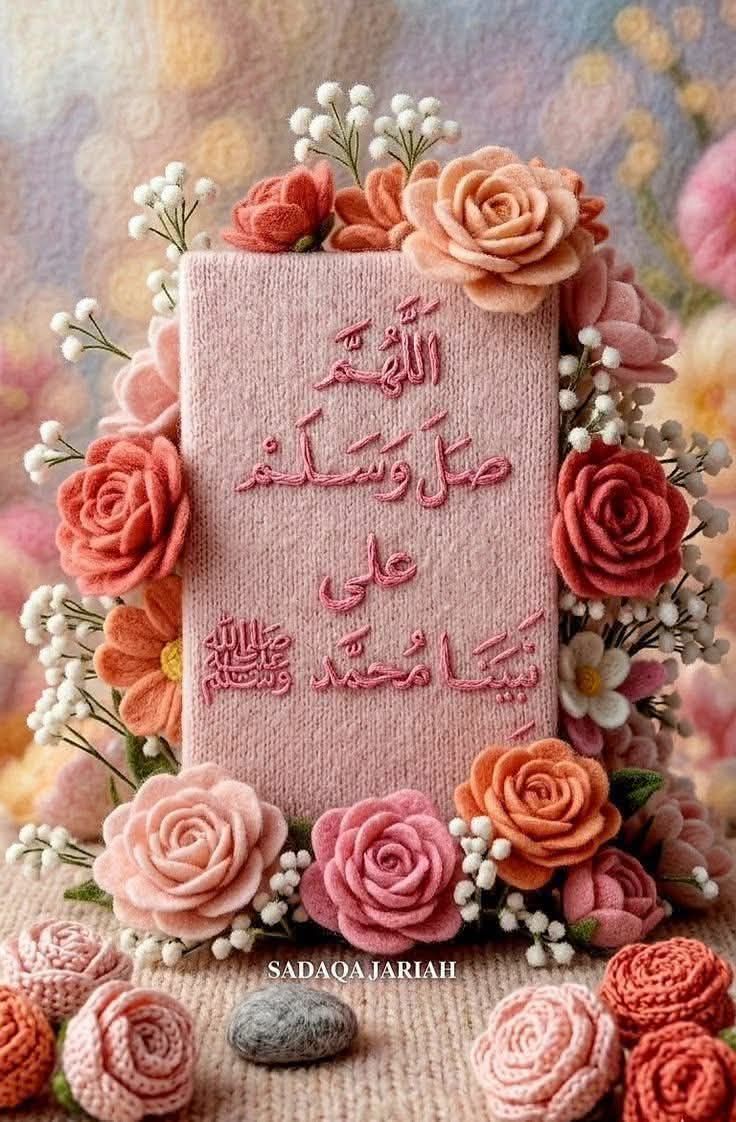 اَللَّهُمَّ
صَلِّ وَسَلِّمْ
عَلى
نَبِيِّنَا مُحَمَّد ﷺ
SADAQA JARIAH